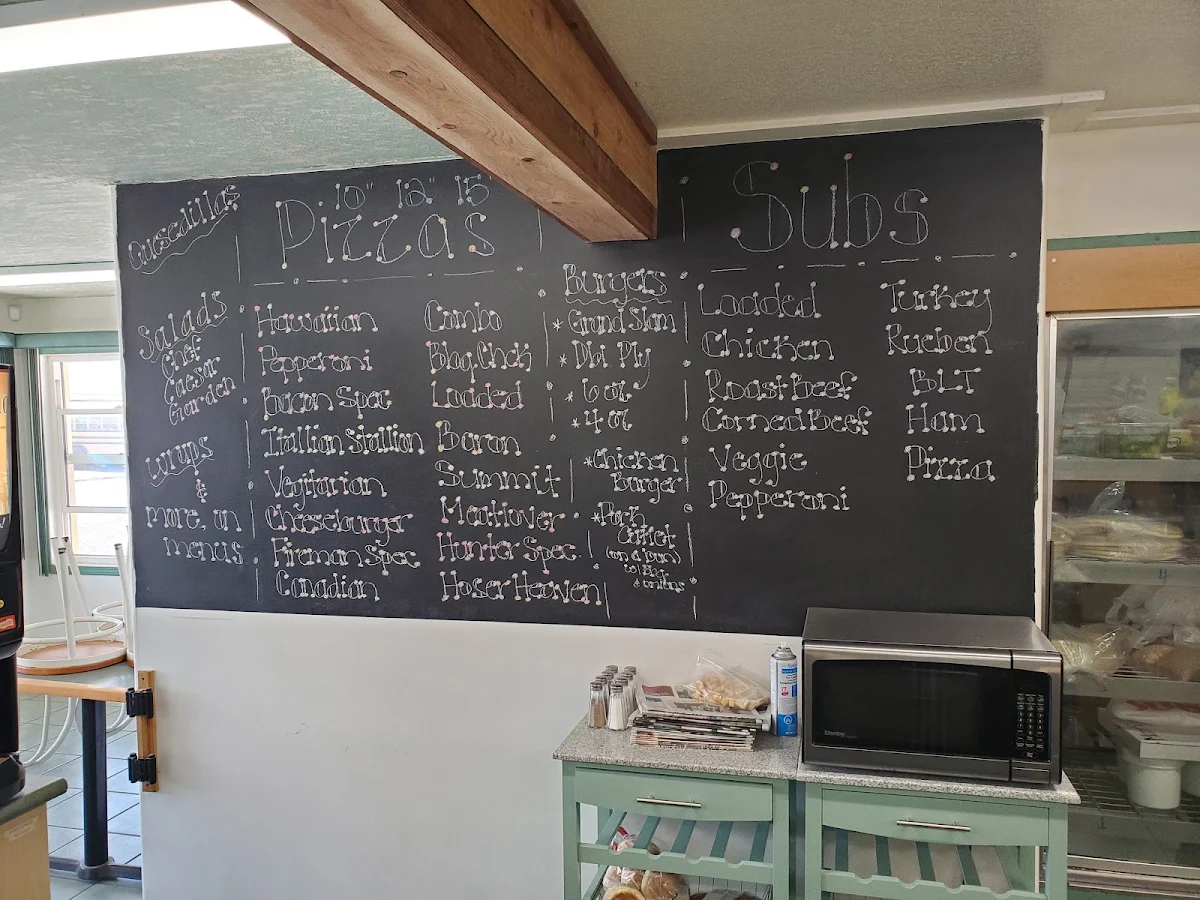 Quesadillas
Salads
Chef
Caesar
Garden
Wraps
&
more, on
menus
10" 12" 15
Pizzas
Hawaiian
Pepperoni
Bacon Spec
Itallian Stallion
Vegitarian
Cheeseburger
Fireman Spec
Canadian
Combo
Bbq Chck
Loaded
Bacon
Summit
Meatlover
Hunter Spec
Hoser Heaven
Burgers
* Grand Slam
* Dbl Ply
* 6 oz
* 4 oz
* Chicken
Burger
* Pork
Cutlet
(on a bun)
& onions
Subs
Loaded
Chicken
Roast Beef
Corned Beef
Veggie
Pepperoni
Turkey
Rueben
BLT
Ham
Pizza
Danby